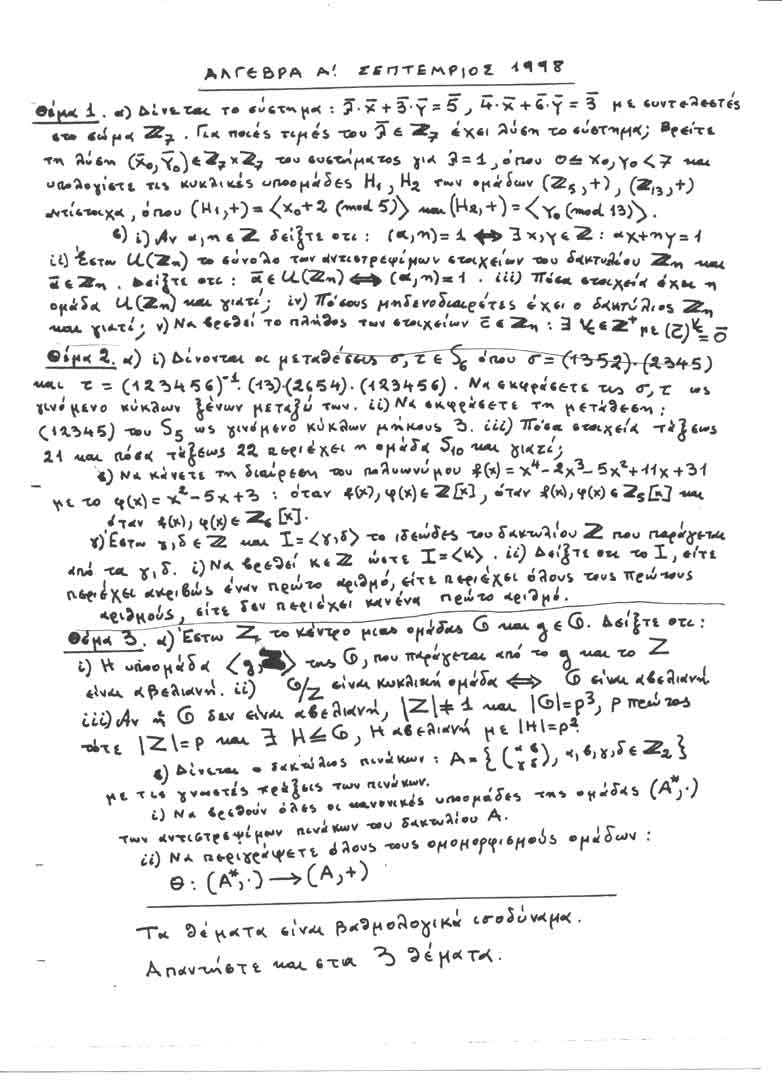 ΑΛΓΕΒΡΑ Α! ΣΕΠΤΕΜΡΙΟΣ 1998
Θέμα 1. α) Δίνεται το σύστημα: λ̄·x̄+3̄·ȳ=5̄, 4̄·x̄+6̄·ȳ=3̄ με συντελεστές
στο σώμα ℤ₇. Για ποιές τιμές του λ̄∈ℤ₇ έχει λύση το σύστημα; Βρείτε
τη λύση (x̄₀,ȳ₀)∈ℤ₇×ℤ₇ του συστήματος για λ=1, όπου 0≤x₀,y₀<7 και
υπολογίστε τις κυκλικές υποομάδες H₁, H₂ των ομάδων (ℤ₅,+), (ℤ₁₃,+)
αντίστοιχα, όπου (H₁,+)=⟨x₀+2 (mod 5)⟩ και (H₂,+)=⟨y₀ (mod 13)⟩.
β) i) Αν α,n∈ℤ δείξτε οτι: (α,n)=1 ⟺ ∃x,y∈ℤ: αx+ny=1
ii) Έστω U(ℤn) το σύνολο των αντιστρεψίμων στοιχείων του δακτυλίου ℤn και
ᾱ∈ℤn. Δείξτε οτι: ᾱ∈U(ℤn) ⟺ (α,n)=1. iii) Πόσα στοιχεία έχει η
ομάδα U(ℤn) και γιατί; iv) Πόσους μηδενοδιαιρέτες έχει ο δακτύλιος ℤn
και γιατί; v) Να βρεθεί το πλήθος των στοιχείων c̄∈ℤn: ∃ k∈ℤ⁺ με (c̄)ᵏ=0̄
Θέμα 2. α) i) Δίνονται οι μεταθέσεις σ,τ∈S₆ όπου σ=(1352)·(2345)
και τ=(123456)⁻¹·(13)·(2654)·(123456). Να εκφράσετε τις σ,τ ως
γινόμενο κύκλων ξένων μεταξύ των. ii) Να εκφράσετε τη μετάθεση:
(12345) του S₅ ως γινόμενο κύκλων μήκους 3. iii) Πόσα στοιχεία τάξεως
21 και πόσα τάξεως 22 περιέχει η ομάδα S₁₀ και γιατί;
β) Να κάνετε τη διαίρεση του πολυωνύμου f(x)=x⁴-2x³-5x²+11x+31
με το φ(x)=x²-5x+3: όταν f(x),φ(x)∈ℤ[x], όταν f(x),φ(x)∈ℤ₅[x] και
όταν f(x),φ(x)∈ℤ₆[x].
γ) Έστω γ,δ∈ℤ και I=⟨γ,δ⟩ το ιδεώδες του δακτυλίου ℤ που παράγεται
από τα γ,δ. i) Να βρεθεί κ∈ℤ ώστε I=⟨κ⟩. ii) Δείξτε οτι το I, είτε
περιέχει ακριβώς έναν πρώτο αριθμό, είτε περιέχει όλους τους πρώτους
αριθμούς, είτε δεν περιέχει κανένα πρώτο αριθμό.
Θέμα 3. α) Έστω Z, το κέντρο μιας ομάδας G και g∈G. Δείξτε οτι:
i) Η υποομάδα ⟨g,Z⟩ της G, που παράγεται από το g και το Z
είναι αβελιανή. ii) G/Z είναι κυκλική ομάδα ⟺ G είναι αβελιανή
iii) Αν ἡ G δεν είναι αβελιανή, |Z|≠1 και |G|=p³, p πρώτος
τότε |Z|=p και ∃ H≤G, H αβελιανή με |H|=p².
β) Δίνεται ο δακτύλιος πινάκων: A={(α β γ δ), α,β,γ,δ∈ℤ₂}
με τις γνωστές πράξεις των πινάκων.
i) Να βρεθούν όλες οι κανονικές υποομάδες της ομάδας (A*,·)
των αντιστρεψίμων πινάκων του δακτυλίου A.
ii) Να περιγράψετε όλους τους ομομορφισμούς ομάδων:
Θ: (A*,·) → (A,+)
Τα θέματα είναι βαθμολογικά ισοδύναμα.
Απαντήστε και στα 3 θέματα.